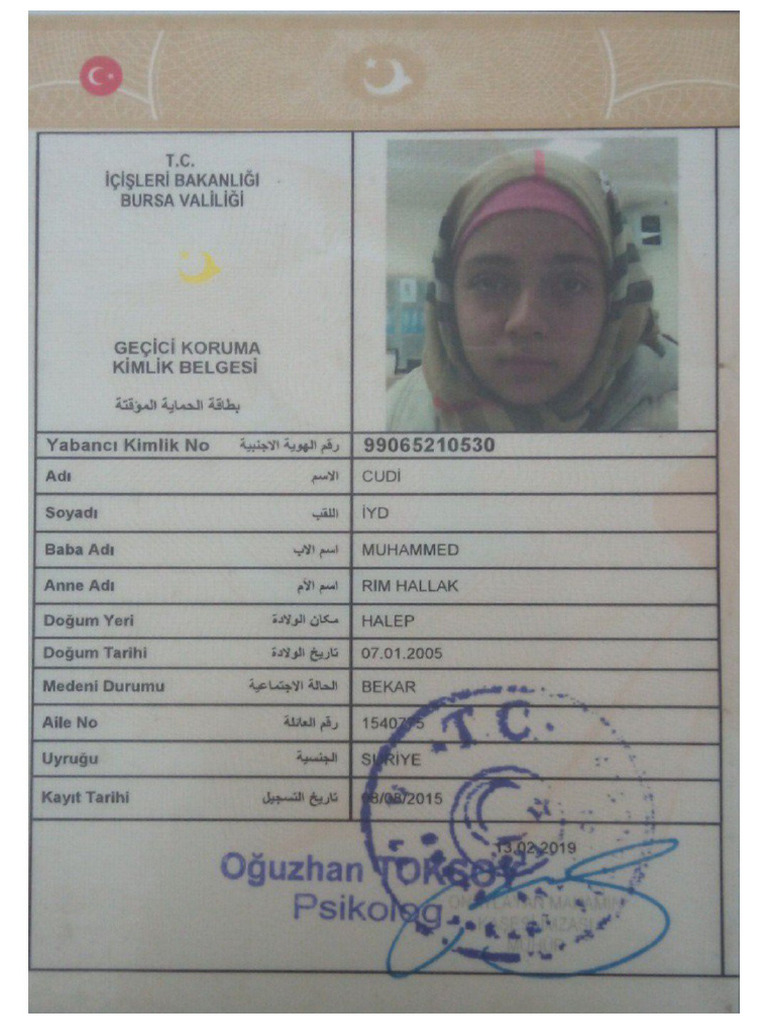 T.C.
İÇİŞLERİ BAKANLIĞI
BURSA VALİLİĞİ
GEÇİCİ KORUMA
KİMLİK BELGESİ
بطاقة الحماية المؤقتة
Yabancı Kimlik No رقم الهوية الاجنبية 99065210530
Adı الاسم CUDİ
Soyadı اللقب İYD
Baba Adı اسم الاب MUHAMMED
Anne Adı اسم الأم RIM HALLAK
Doğum Yeri مكان الولادة HALEP
Doğum Tarihi تاريخ الولادة 07.01.2005
Medeni Durumu الحالة الاجتماعية BEKAR
Aile No رقم العائلة
Uyruğu الجنسية SURİYE
Kayıt Tarihi تاريخ التسجيل
T.C.
13.02.2019
Oğuzhan TOKSOY
Psikolog